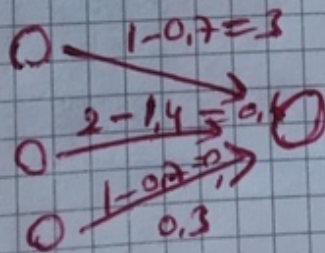 1-0,7=3
2-1,4=0,6
1-0,7=0,
0.3